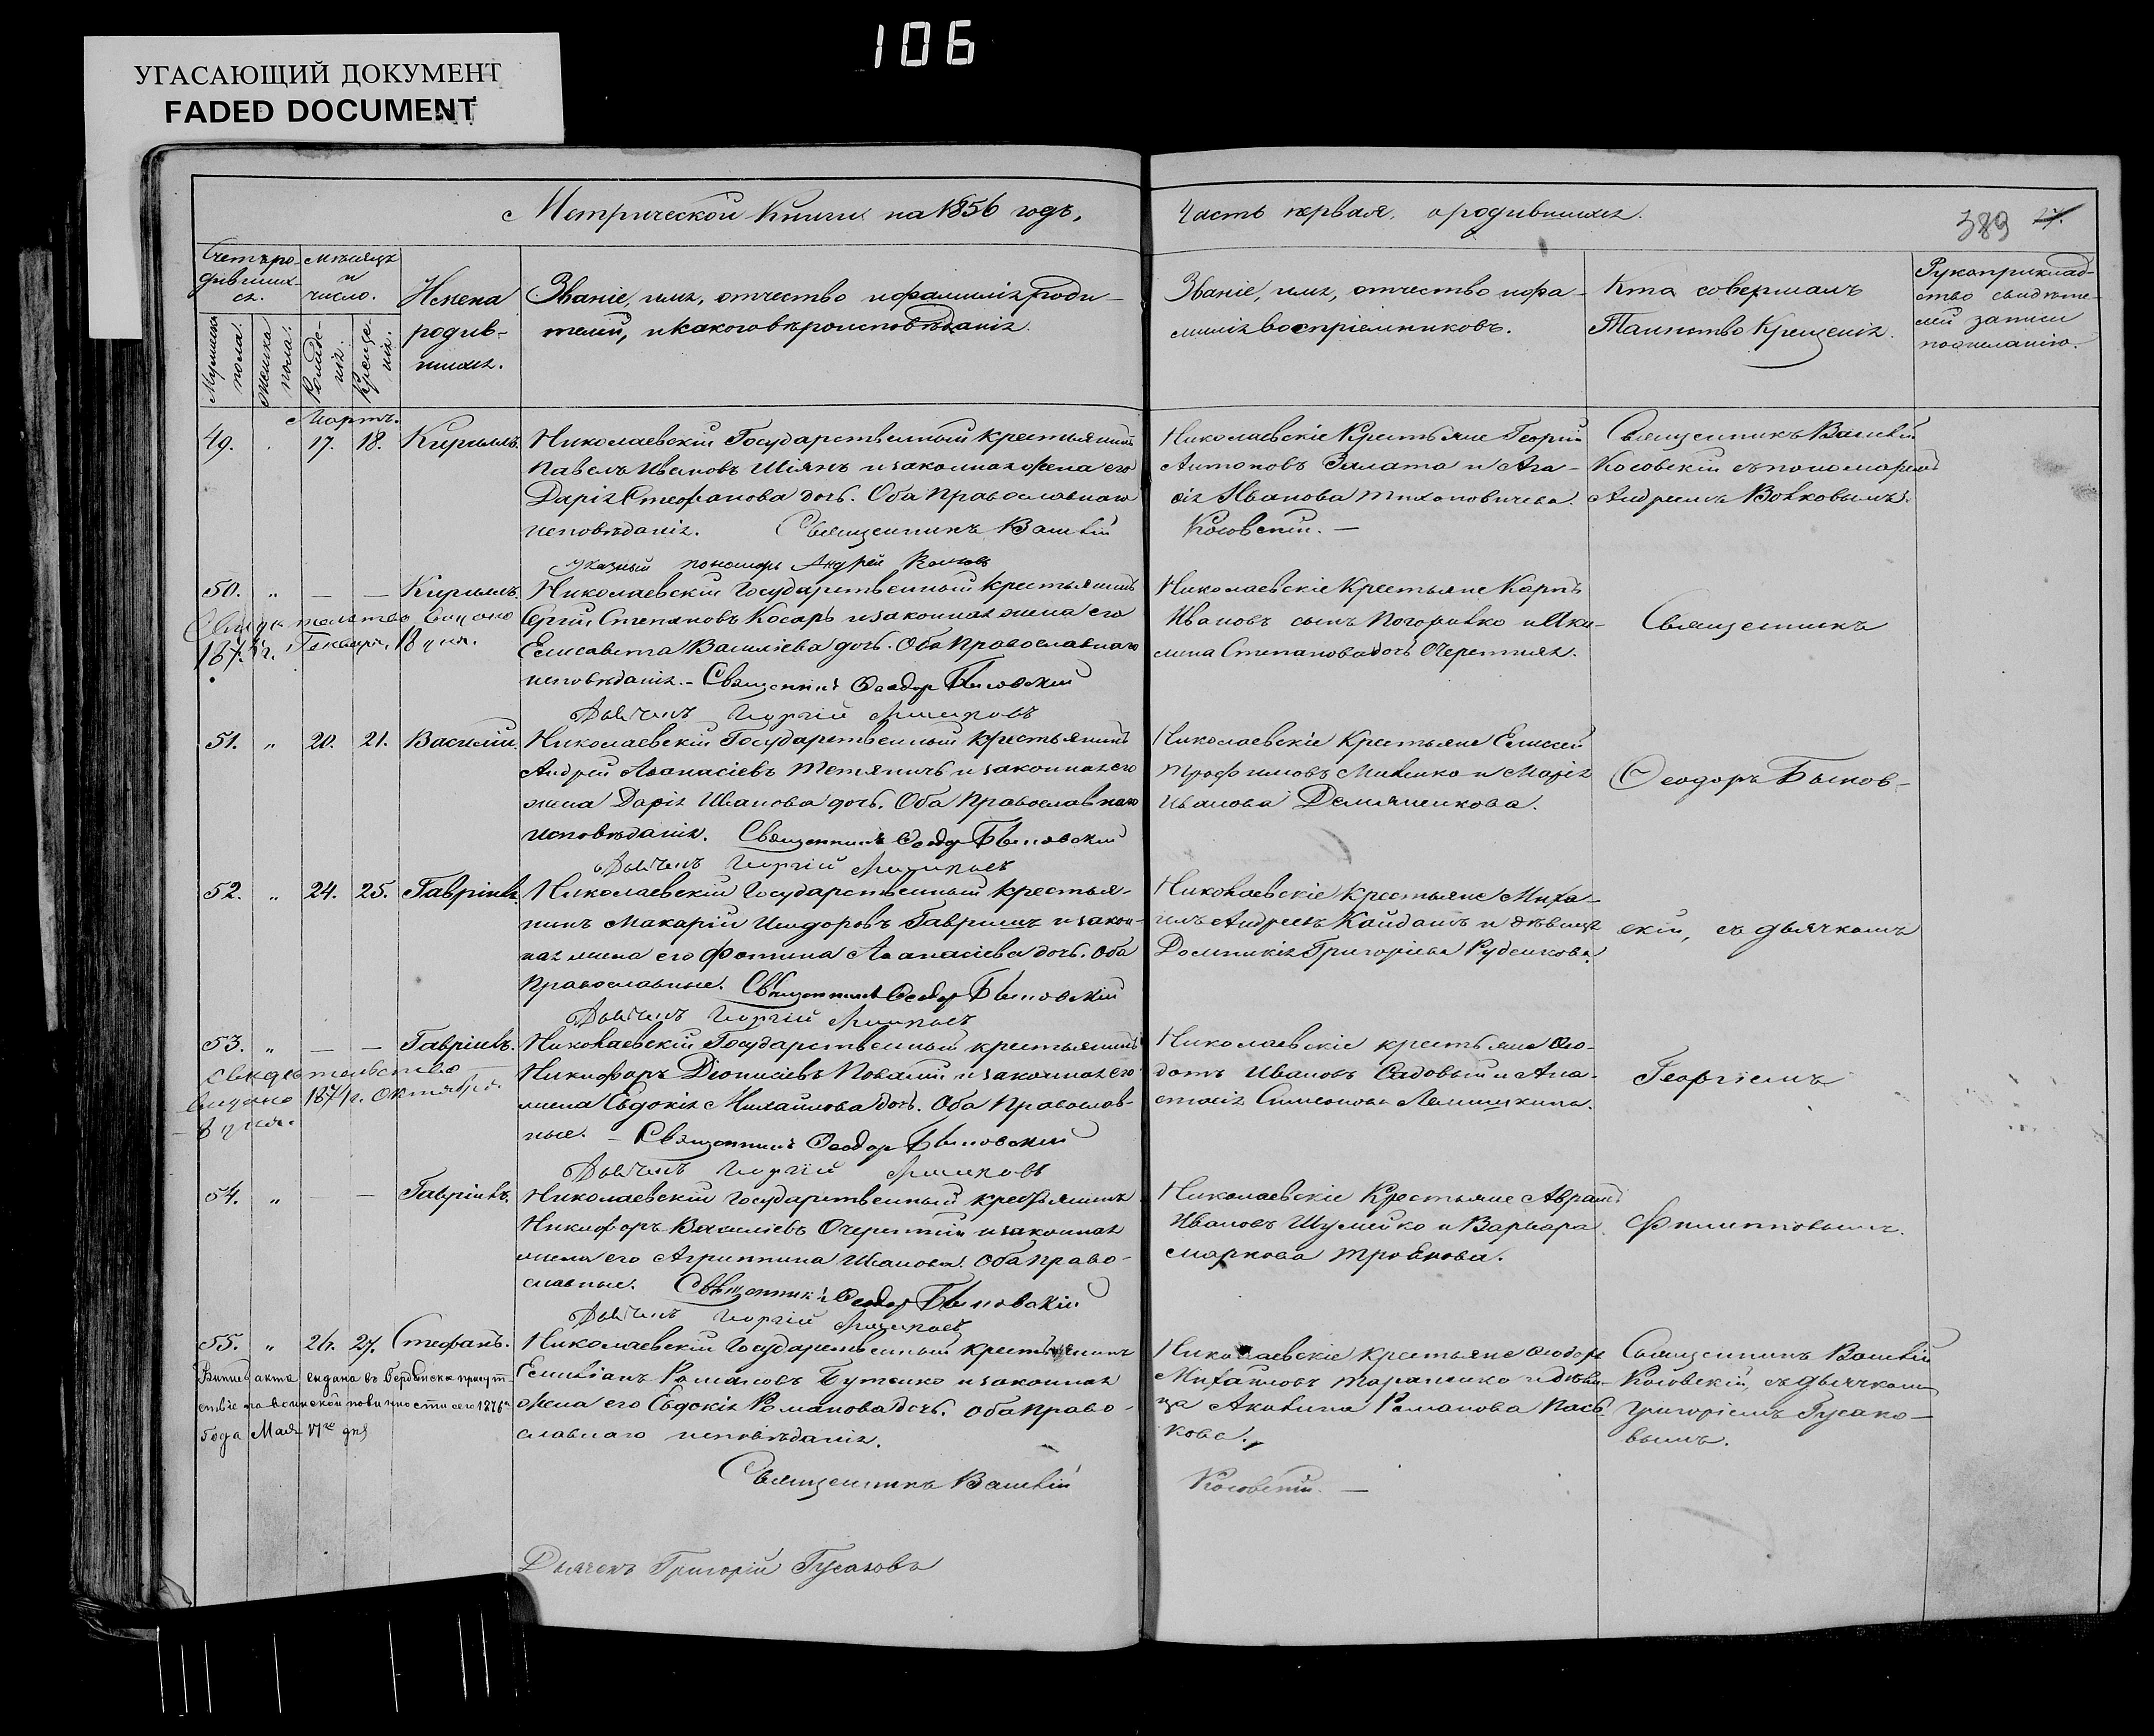 106
УГАСАЮЩИЙ ДОКУМЕНТ
FADED DOCUMENT
Метрической Книги на 1856 годъ,
Часть первая, о родившихся.
389
Счетъ родившихся.
Мѣсяцъ и число.
Имена родившихся.
Званіе, имя, отчество и фамилія родителей, и какого вѣроисповѣданія.
Званіе, имя, отчество и фамилія воспріемниковъ.
Кто совершалъ Таинство Крещенія.
Рукоприкладство свидѣтелей записи по желанію.
Мужеска пола.
Женска пола.
Рожденія.
Крещенія.
Мартъ.
49. 17. 18. Кириллъ.
Николаевскій Государственный крестьянинъ
Павелъ Ивановъ Шіянъ и законная жена его
Дарія Стефанова дочь. Оба Православнаго
исповѣданія. Священникъ Василій
Указный пономарь Андрей Волковъ
Николаевскіе Крестьяне Георгій
Антоновъ Залата и Ага-
ѳія Иванова Тихоновичева.
Косовскій. —
Священникъ Василій
Косовскій съ пономаремъ
Андреемъ Волковымъ.
50. „ — — Кириллъ.
Свидѣтельство выдано
Генваря 18 дня.
Николаевскій Государственный крестьянинъ
Сергій Степановъ Косарь и законная жена его
Елисавета Василіева дочь. Оба Православнаго
исповѣданія. — Священникъ Ѳеодоръ Быковскій
Дьячекъ Георгій
Николаевскіе Крестьяне Карпъ
Ивановъ сынъ Погорилко и Аки-
лина Степанова дочь Очеретняя.
Священникъ
51. „ 20. 21. Василій.
Николаевскій Государственный крестьянинъ
Андрей Аѳанасіевъ Тетяничъ и законная его
жена Дарія Иванова дочь. Оба Православнаго
исповѣданія. Священникъ Ѳеодоръ Быковскій
Дьячекъ Георгій
Николаевскіе Крестьяне Елисей
Трофимовъ и Марія
Иванова Демяненкова.
Ѳеодоръ Быков-
52. „ 24. 25. Гавріилъ.
Николаевскій Государственный крестья-
нинъ Макарій Исидоровъ Гавришъ и закон-
ная жена его Фотина Аѳанасіева дочь. Оба
Православные. Священникъ Ѳеодоръ Быковскій
Дьячекъ Георгій
Николаевскіе крестьяне Миха-
илъ Андреевъ Кайдашъ и дѣвица
Домникія Григоріева Руденкова.
скій, съ дьячкомъ
53. „ — — Гавріилъ.
Свидѣтельство
выдано 1874 г. Октября
8 дня.
Николаевскій Государственный крестьянинъ
Никифоръ Діонисіевъ и законная его
жена Евдокія Михайлова дочь. Оба Православ-
ные. — Священникъ Ѳеодоръ Быковскій
Дьячекъ Георгій
Николаевскіе крестьяне Ѳео-
дотъ Ивановъ Садовый и Ана-
стасія Симеонова
Георгіемъ
54. „ — — Гавріилъ.
Николаевскій Государственный крестьянинъ
Никифоръ Василіевъ Очеретній и законная
жена его Агриппина Иванова. Оба Право-
славные. Священникъ Ѳеодоръ Быковскій
Дьячекъ Георгій
Николаевскіе Крестьяне Аврамъ
Ивановъ Шумейко и Варвара
Маркова Троянова.
Филипповымъ.
55. „ 26. 27. Стефанъ.
акта выдана въ Бердянска присут-
ствіе по воинской повинности сего 1876
года Мая 17го дня
Николаевскій Государственный крестьянинъ
Емиліанъ Романовъ Бутенко и законная
жена его Евдокія Романова дочь. Оба Право-
славнаго исповѣданія.
Священникъ Василій
Дьячекъ Григорій Гусаковъ
Николаевскіе крестьяне Ѳеодоръ
Михайловъ Тараненко и дѣви-
ца Акилина Романова
кова.
Косовскій. —
Священникъ Василій
Косовскій, съ дьячкомъ
Григоріемъ Гусако-
вымъ.